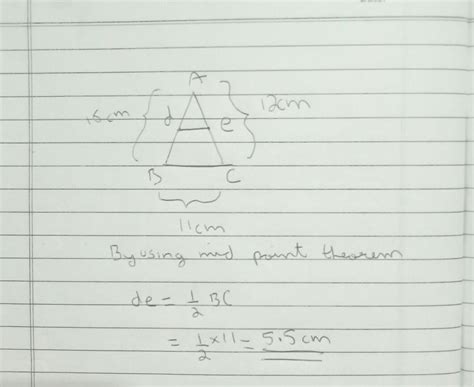 A
15cm d e 12cm
B C
11cm
By using mid point theorem
de = 1/2 BC
= 1/2 × 11 = 5.5 cm